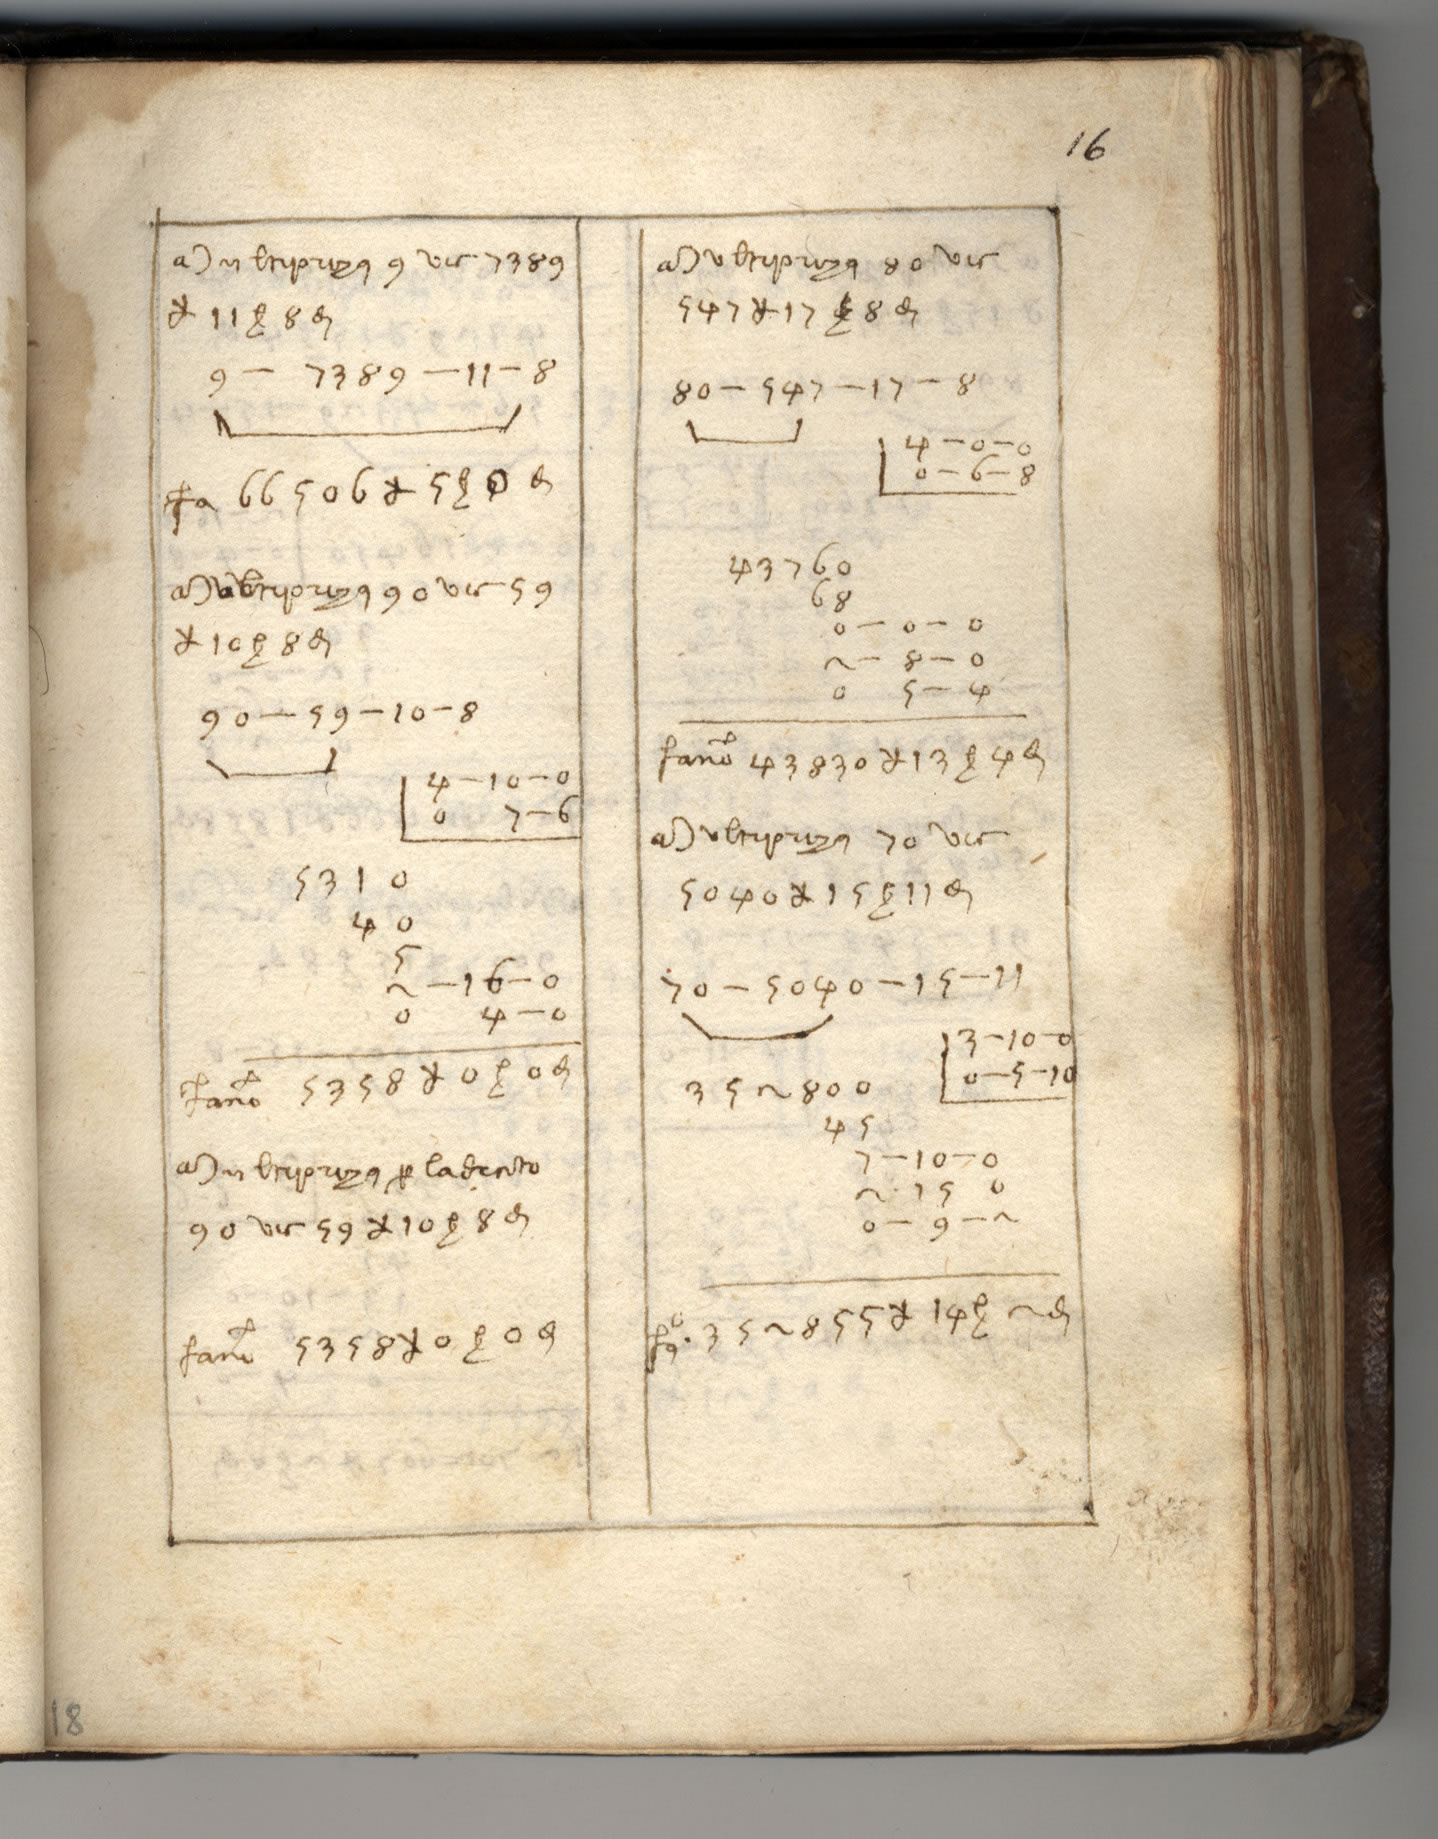 16
9 vie 7389
£ 11 s 8 d
9 — 7389 — 11 — 8
fa 66506 £ 5 s 0 d
90 vie 59
£ 10 s 8 d
90 — 59 — 10 — 8
4 — 10 — 0
0 7 — 6
5310
40
5
2 — 16 — 0
0 4 — 0
fano 5358 £ 0 s 0 d
90 vie 59 £ 10 s 8 d
fano 5358 £ 0 s 0 d
80 vie
547 £ 17 s 8 d
80 — 547 — 17 — 8
4 — 0 — 0
0 — 6 — 8
43760
68
0 — 0 — 0
2 — 8 — 0
0 5 — 4
fano 43830 £ 13 s 4 d
70 vie
5040 £ 15 s 11 d
70 — 5040 — 15 — 11
3 — 10 — 0
0 — 5 — 10
352800
45
7 — 10 — 0
2 · 15 0
0 — 9 — 2
352855 £ 14 s 2 d
18